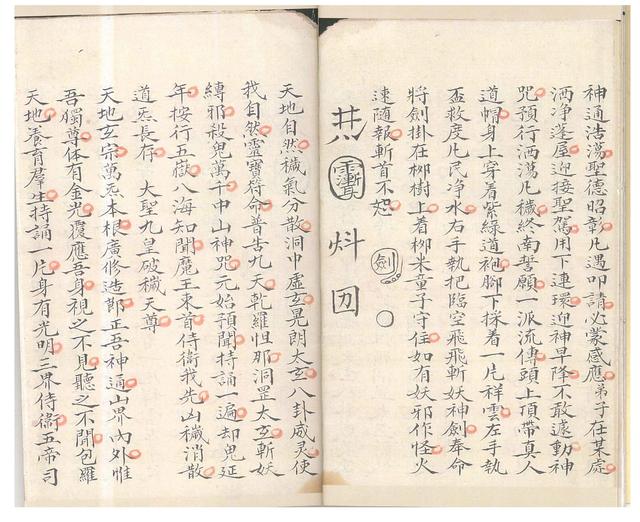 神通浩蕩聖德昭彰凡遇叩請必蒙感應弟子在某處
洒净蓬屋迎接聖駕用下連環迎神早降不敢遽動神
咒預行洒蕩凡穢終南誓願一派流傳頭上頂帶真人
道帽身上穿着紫綠道袍腳下採着一片祥雲左手執
盃救度凡民净水右手執把臨空飛飛斬妖神劍奉命
將劍掛在柳樹上着柳米童子守住如有妖邪作怪火
速随報斬首不恕
劍
天地自然穢氣分散洞中虛玄晃朗太玄八卦威灵使
我自然靈寶符命普告九天乾羅怛那洞罡太玄斬妖
縛邪殺鬼萬千中山神咒元始預聞持誦一遍却鬼延
年按行五嶽八海知聞魔王束首侍衛我先凶穢消散
道炁長存 大聖九皇破穢天尊
天地玄宗萬炁本根廣修造郎正吾神通山界內外惟
吾獨尊体有金光覆應吾身視之不見聽之不聞包羅
天地養育羣生持誦一片身有光明三界侍衛五帝司